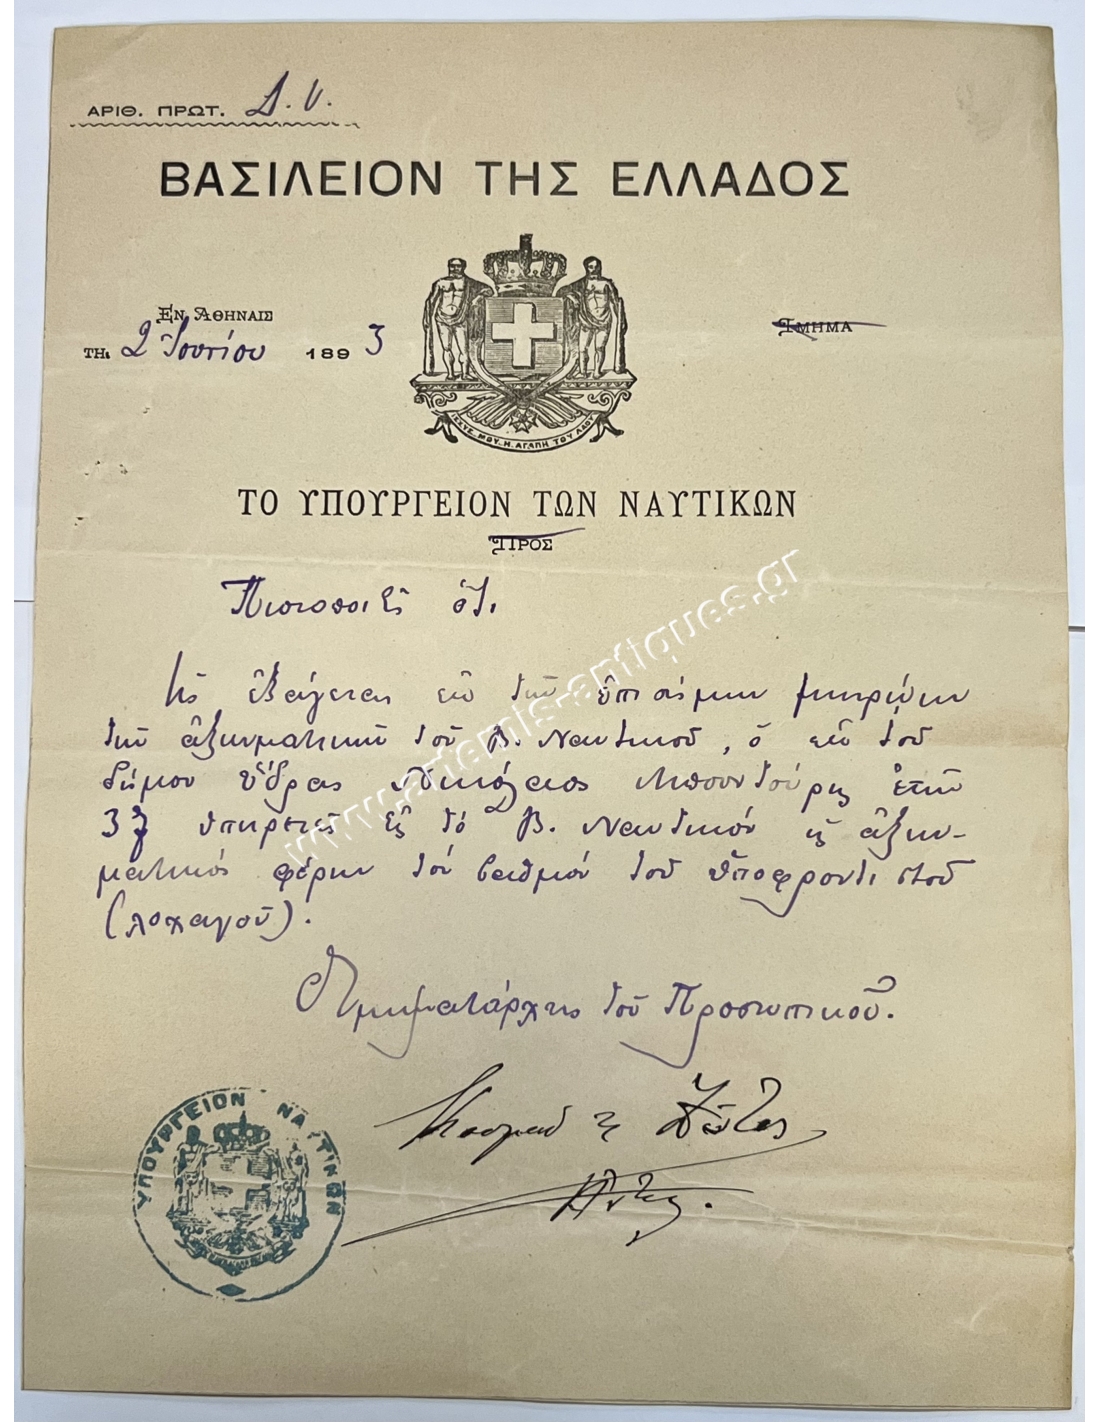 ΑΡΙΘ. ΠΡΩΤ. Δ.Υ.
ΒΑΣΙΛΕΙΟΝ ΤΗΣ ΕΛΛΑΔΟΣ
ΕΝ ΑΘΗΝΑΙΣ
ΤΗι 2 Ἰουνίου 1893
ΤΜΗΜΑ
ΙΣΧΥΣ ΜΟΥ Η ΑΓΑΠΗ ΤΟΥ ΛΑΟΥ
ΤΟ ΥΠΟΥΡΓΕΙΟΝ ΤΩΝ ΝΑΥΤΙΚΩΝ
ΠΡΟΣ
Πιστοποιεῖ ὅτι
Ὡς ἐξάγεται ἐκ τῶν ἐπισήμων μητρώων
τῶν ἀξιωματικῶν τοῦ Β. Ναυτικοῦ, ὁ ἐκ τοῦ
δήμου Ὕδρας Νικόλαος Μπουντούρης ἐτῶν
37 ὑπηρετεῖ εἰς τὸ Β. Ναυτικόν ὡς ἀξιω-
ματικός φέρων τόν βαθμόν τοῦ ὑποφροντιστοῦ
(λοχαγοῦ).
Ὁ Τμηματάρχης τοῦ Προσωπικοῦ.
ΥΠΟΥΡΓΕΙΟΝ ΝΑΥΤΙΚΩΝ
www.artemis-antiques.gr